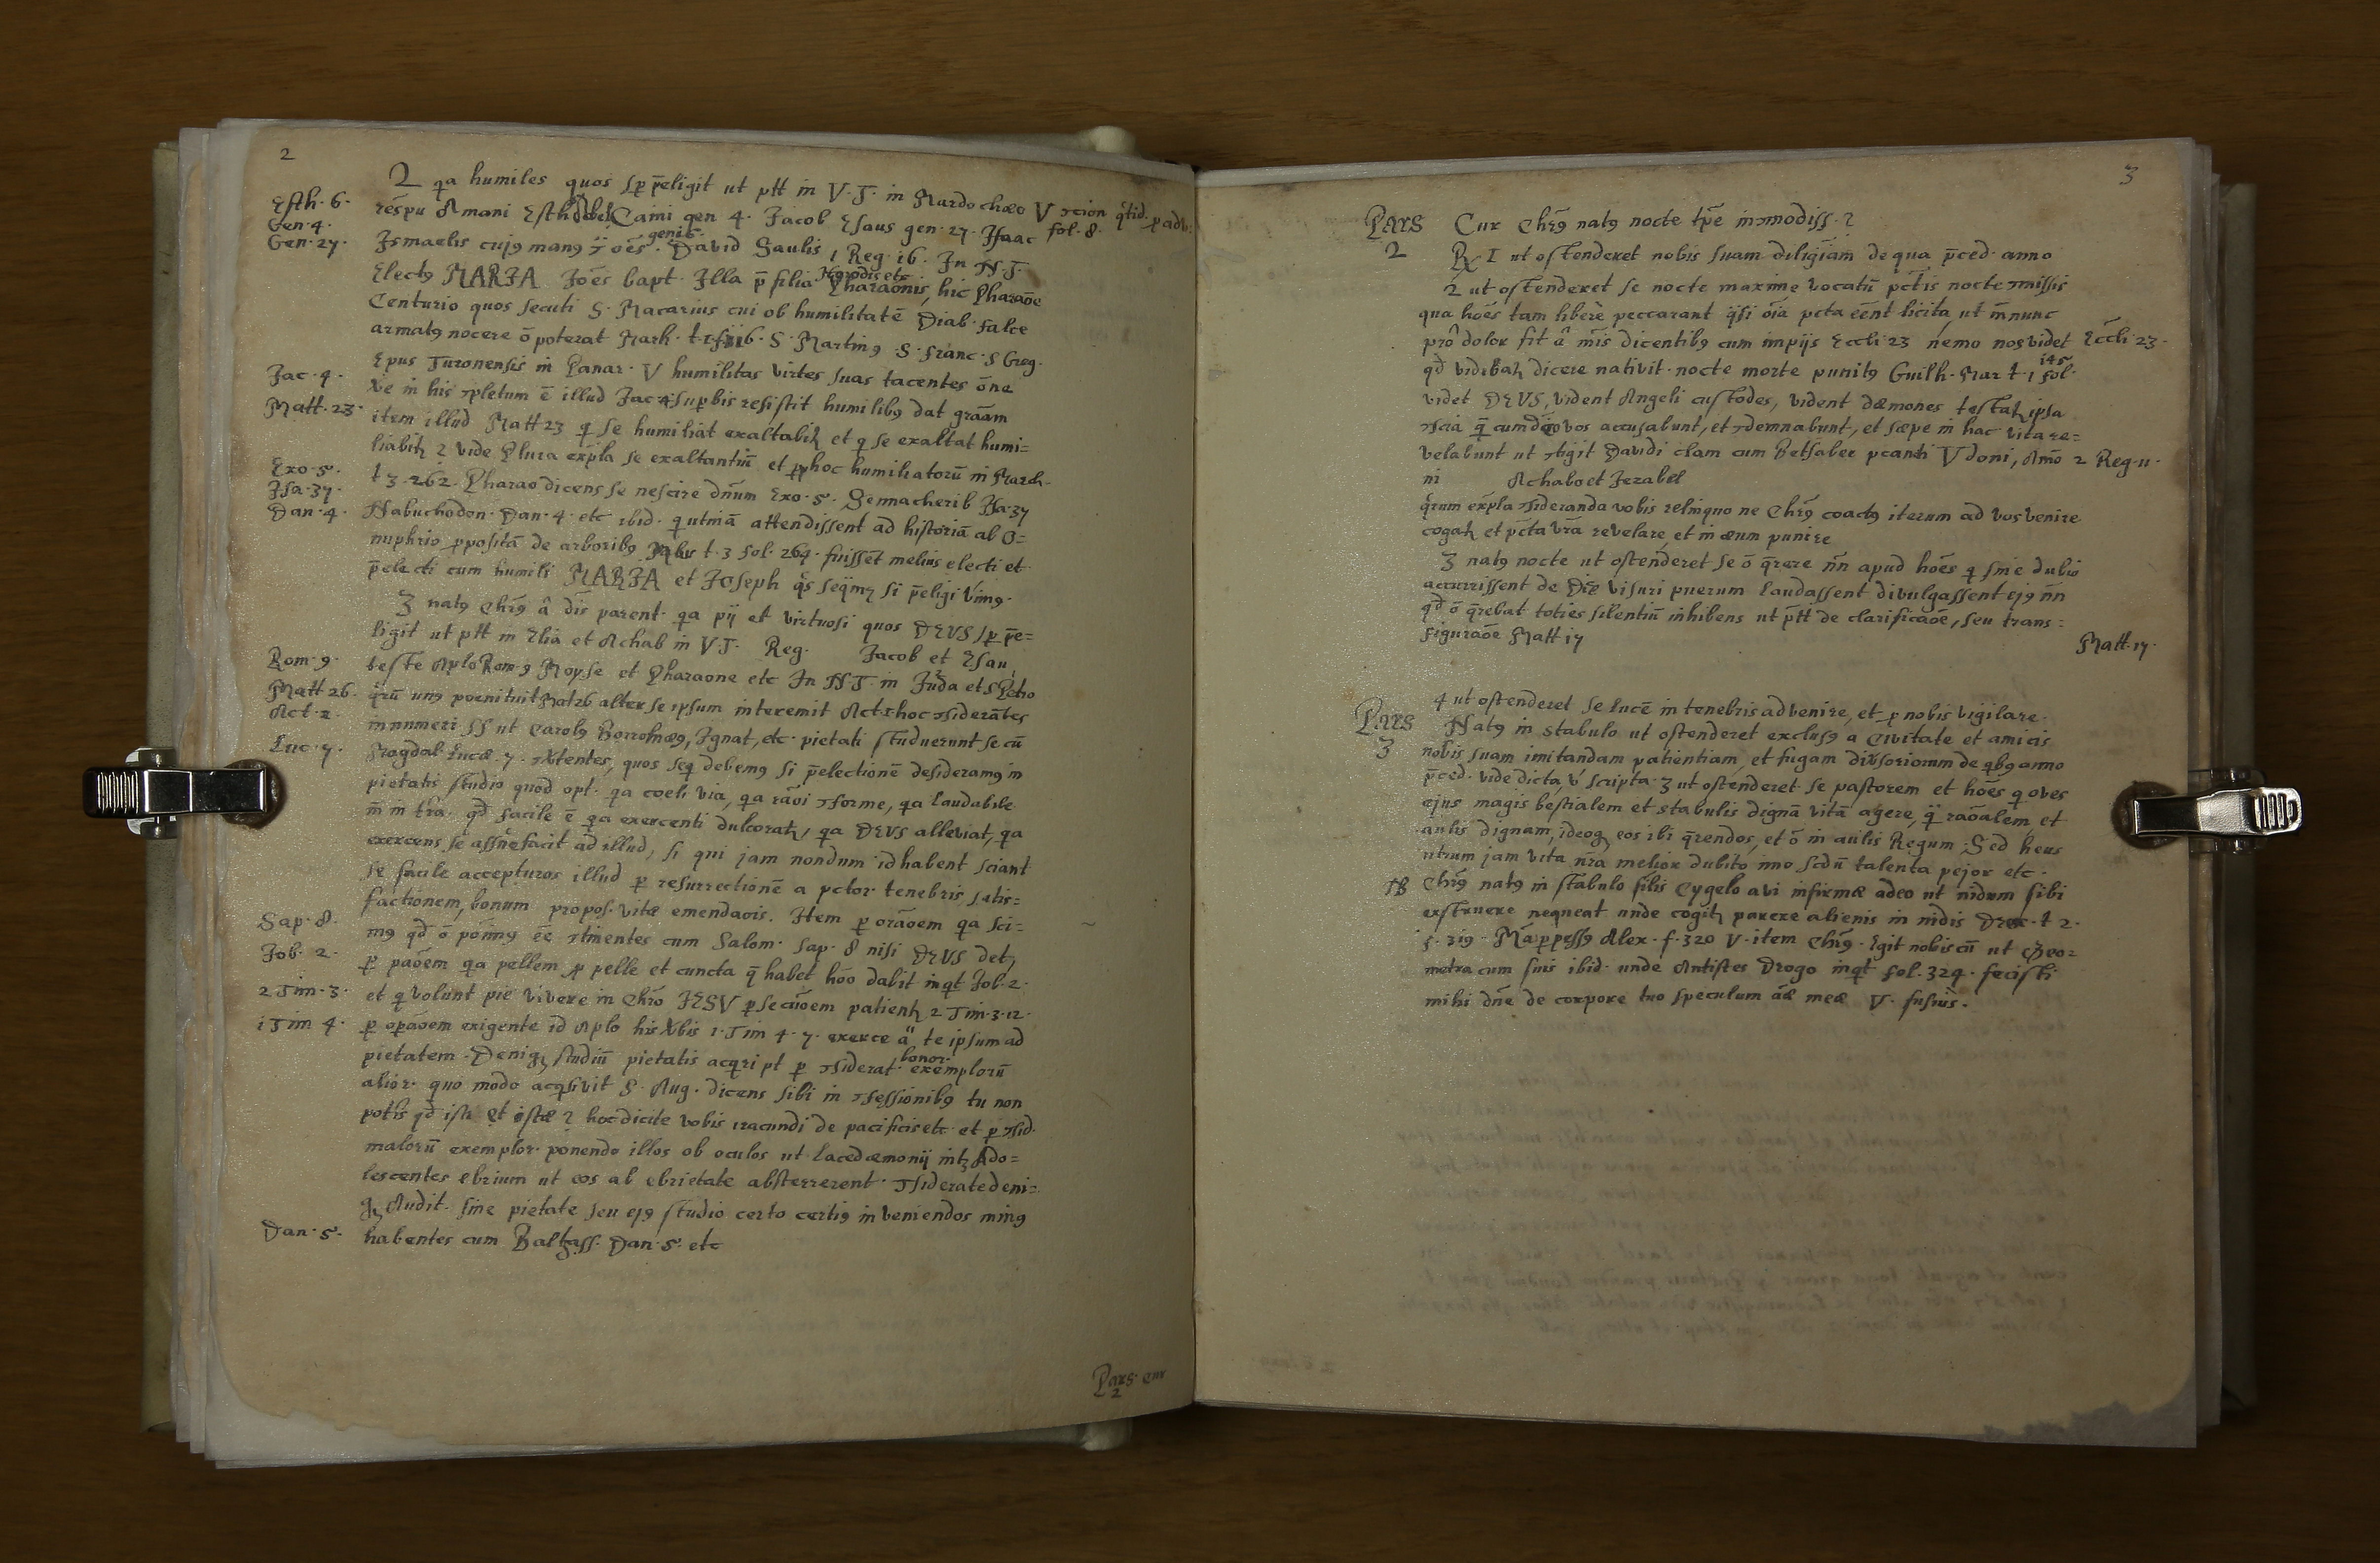 2
2 qa humiles quos sp p̄eligit ut ptt in V. T. in Mardochæo V
Esth. 6.
respu Amani Esth Abel Caini gen 4. Jacob Esaus gen. 27. Isaac fol. 8.
Gen. 4.
Gen. 27.
Ismaelis cujꝯ manꝯ oēs. David Saulis 1 Reg. 16. In N. T.
Electꝯ MARIA Joēs bapt. Illa p̄ filia Pharaonis, hic Pharaōe
Herodis etc
Centurio quos secuti S. Macarius cui ob humilitatē Diab. falce
armatꝯ nocere ō poterat March. S. Martinꝯ S. Franc. S Greg.
Epus Turonensis in Panar. V humilitas virtes suas tacentes
Jac. 4.
in his pletum ē illud Jac 4 suꝑbis resistit humilibꝯ dat graām
Matt. 23.
item illud Matt 23 q se humiliat exaltabit et q se exaltat humi=
liabit 2 vide Plura exp̄la se exaltantiū et hoc humiliatorū in March.
Exo. 5.
t 3. 262. Pharao dicens se nescire dn̄um Exo. 5. Sennacherib Isa. 37
Isa. 37.
Dan. 4.
Nabuchodon. Dan. 4. etc ibid. q utinā attendissent ad historiā ab O=
nuphrio ꝓpositā de arboribꝯ t. 3 fol. 264. fuissēt melius electi et
p̄electi cum humili MARIA et Joseph qs seqmꝯ si p̄eligi vimꝯ.
3 natꝯ Chrꝯ â dis parent. qa pij et virtuosi quos DEVS sp p̄e=
ligit ut ptt in Elia et Achab in V. T. Reg. Jacob et Esau
Rom. 9.
teste Aplo Rom. 9 Moyse et Pharaone etc In N. T. in Juda et S Petro
Matt 26.
qrū unꝯ poenituit Mat 26 alter se ipsum interemit Act. 2 hoc ɔsiderātes
Act. 2.
innumeri SS ut Carolꝯ Borromæꝯ, Ignat, etc. pietati studuerunt se cū
Luc. 7.
Magdal. Lucæ. 7. quos seq debemꝯ si p̄electionē desideramꝯ in
pietatis studio quod opt. qa coeli via, qa raōi ɔforme, qa laudabile
m̄ in trā. qd facile ē qa exercenti dulcorat, qa DEVS alleviat, qa
exercens se assuefacit ad illud, si qui jam nondum id habent sciant
se facile accepturos illud ꝑ resurrectionē a pctor. tenebris, satis=
factionem, bonum propos. vitæ emendaōis. Item ꝑ orāōem qa sci=
Sap. 8.
mꝯ qd ō pōimꝯ ēē ɔtinentes cum Salom. Sap. 8 nisi DEVS det,
Job. 2.
ꝑ paōem qa pellem ꝓ pelle et cuncta q̄ habet hōo dabit inqt Job. 2.
2 Tim. 3.
et q volunt pie vivere in Chrō JESV ꝑsecūōem patient 2 Tim. 3. 12.
1 Tim 4.
ꝑ opaōem exigente id Aplo his Vbis 1. Tim 4. 7. exerce te ipsum ad
pietatem. Deniqꝫ studiū pietatis acqri pt ꝑ ɔsiderat. bonor. exemplorū
alior. quo modo acqsivit S. Aug. dicens sibi in ɔfessionibꝯ tu non
potis qd isti et istæ? hoc dicite vobis iracundi de pacificis etc. et ꝑ ɔsid.
malorū exemplor. ponendo illos ob oculos ut Lacedæmonij int Ado=
lescentes ebrium ut eos ab ebrietate absterrerent. ɔsiderate deni=
qꝫ Audit. sine pietate seu ejꝯ studio certo certiꝯ inveniendos minꝯ
Dan. 5.
habentes cum Baltass. Dan. 5. etc
Pars. Cur
2
3
Pars
2
Cur Chrꝯ natꝯ nocte tp̄e inɔmodiss. ?
R 1 ut ostenderet nobis suam diligiam de qua p̄ced. anno
2 ut ostenderet se nocte maxime vocatū pctis nocte ɔmissis
qua hoēs tam liberè peccarant qsi oīa pcta ēent licita, ut m̄ nunc
prô dolor fit â mis dicentibꝯ cum impijs Eccli 23 nemo nos videt
Eccli 23.
qd videbat dicere nativit. nocte morte punitꝯ Guilh. Mar t. 1 fol. 145
videt DEVS, vident Angeli custodes, vident dæmones testat ipsa
ɔscia q̄ cum vos accusabunt, et ɔdemnabunt, et sæpe in hac vita re=
velabunt ut ɔtigit Davidi clam cum Betsabee pcanti V doni, Amō
2 Reg. 11.
ni Achabo et Jezabel
qrum exp̄la ɔsideranda vobis relinquo ne Chrꝯ coactꝯ iterum ad vos venire
cogat et pcta vrā revelare, et in æum punire
3 natꝯ nocte ut ostenderet se ō q̄rere nn̄ apud hoēs q sine dubio
accurrissent de Die visuri puerum laudassent divulgassent ejꝯ nn̄
qd ō q̄rebat toties silentiū inhibens ut ptt de clarificaōe, seu trans=
figuraōe Matt 17
Matt. 17.
4 ut ostenderet se lucē in tenebris advenire, et ꝑ nobis vigilare.
Pars
3
Natꝯ in stabulo ut ostenderet exclusꝯ a Civitate et amicis
nobis suam imitandam patientiam, et fugam divsoriorum de qbꝯ anno
p̄ced. vide dicta, v scripta. 3 ut ostenderet se pastorem et hoēs q oves
ejus magis bestialem et stabulis dignā vitā agere, q̄ raōalem et
aulis dignam, ideoqꝫ eos ibi q̄rendos, et ō in aulis Regum. Sed heus
utrum jam vita nrā melior dubito imo scdū talenta pejor etc.
NB
Chrꝯ natꝯ in stabulo silis Cygelo avi infirmæ adeo ut nidum sibi
exstruere nequeat unde cogit parere alienis in nidis Drex. t 2.
f. 319. Alex. f. 320 V. item Chrꝯ. Egit nobiscū ut Geo=
metra cum suis ibid. unde Antistes Drogo inqt fol. 324. fecisti
mihi dn̄e de corpore tuo speculum āæ meæ V. fusius.